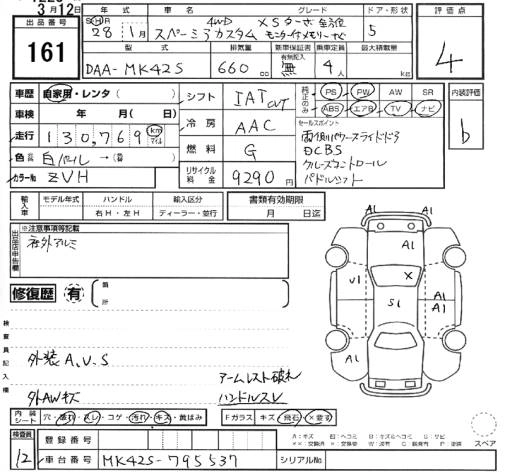 3月12日
出品番号
161
年式 車名 グレード ドア・形状 評価点
SH R 28年 1月 スペーシアカスタム 4WD XSターボ 全方位モニター付メモリーナビ 5 4
型式 排気量 新車保証書 乗車定員 最大積載量
DAA-MK42S 660 cc 有無記入 無 4人 kg
車歴 自家用・レンタ( )
シフト IAT CVT
純正のみ PS PW AW SR
ABS エアB TV ナビ
内装評価
b
車検 年( )月( )日
冷房 AAC
セールスポイント
両側パワースライドドア
DCBS
クルーズコントロール
パドルシフト
走行 130,769 km マイル
燃料 G
色 白パール → (替 )
カラーNo ZVH
リサイクル料金 9290円
輸入車 モデル年式 ハンドル 輸入区分
右H・左H ディーラー・並行
書類有効期限
月 日迄
出品店申告欄
※注意事項等記載
社外アルミ
修復歴 有 箇所
A1 A1
A1
U1 X A1
S1 A1
A1
A1 A1
検査員記入欄
外装A、U、S
外AWキズ
アームレスト破れ
ハンドルスレ
内装シート 穴・擦れ・スレ・コゲ・汚れ・キズ・黄ばみ
Fガラス キズ・飛石・×要す
スペア
検査員 12
登録番号
車台番号 MK42S-795537
シリアルNo